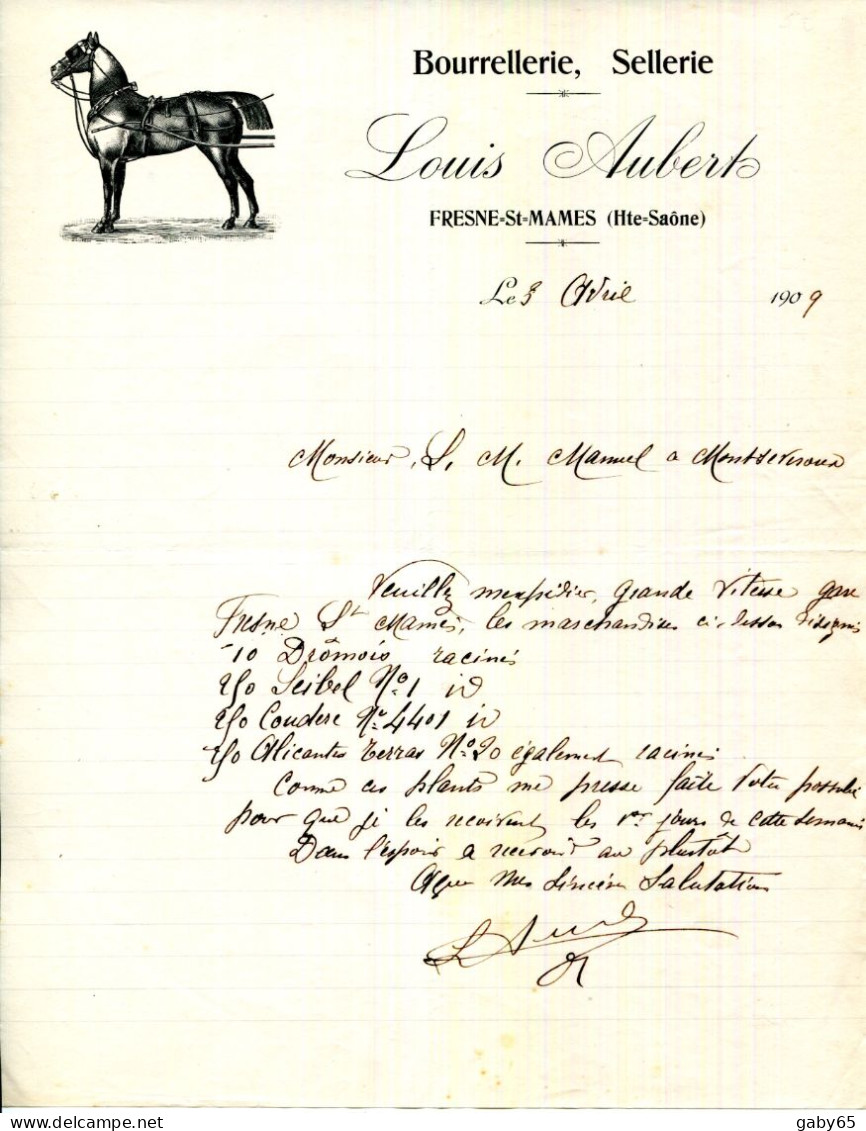 Bourrellerie, Sellerie
Louis Aubert
FRESNE-St-MAMES (Hte-Saône)
Le 3 Avril 1909
Monsieur, S. M. Manuel a Montseveroux
Veuillez m'expédier, grande vitesse gare
Fresne St Mamès, les marchandises ci-dessous désignés
10 Drômois racinés
250 Seibel No 1 id
250 Couderc No 4401 id
250 Alicantes Terras No 20 également racinés
Comme ces plants me presse faite votre possible
pour que je les recoivent les 1er jours de cette semaine
Dans l'espoir a recevoir au plustôt
Agréer mes sincères Salutations
delcampe.net
gaby65